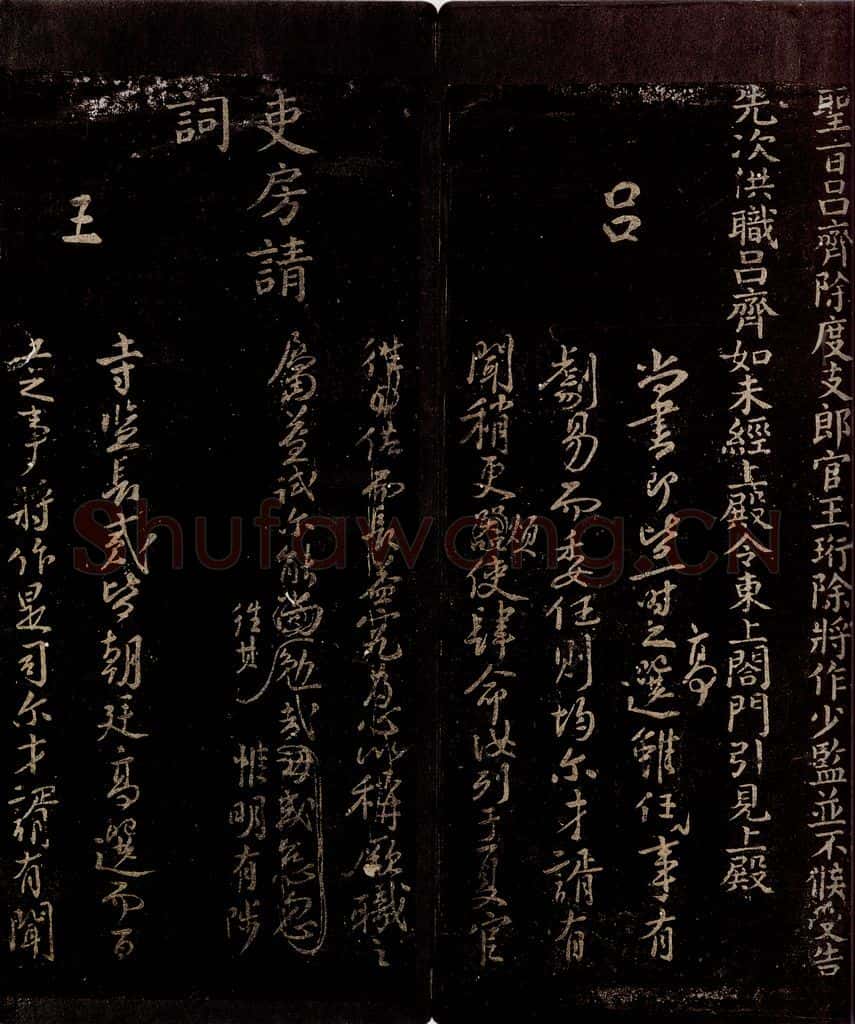 聖旨呂齊除度支郎官王珩除將作少監並不候受告
先次供職呂齊如未經上殿令東上閤門引見上殿
呂
尚書郎皆一時之選雖任事有
高
劇易而委任則均尔才諝有
聞稍更煩使肆命汝列于夏官
往
以稱厥職之
往其
惟明有陟
吏房請
詞
王
寺監長貳皆朝廷高選而百
工之事將作是司尔才諝有聞
Shufawang.CN